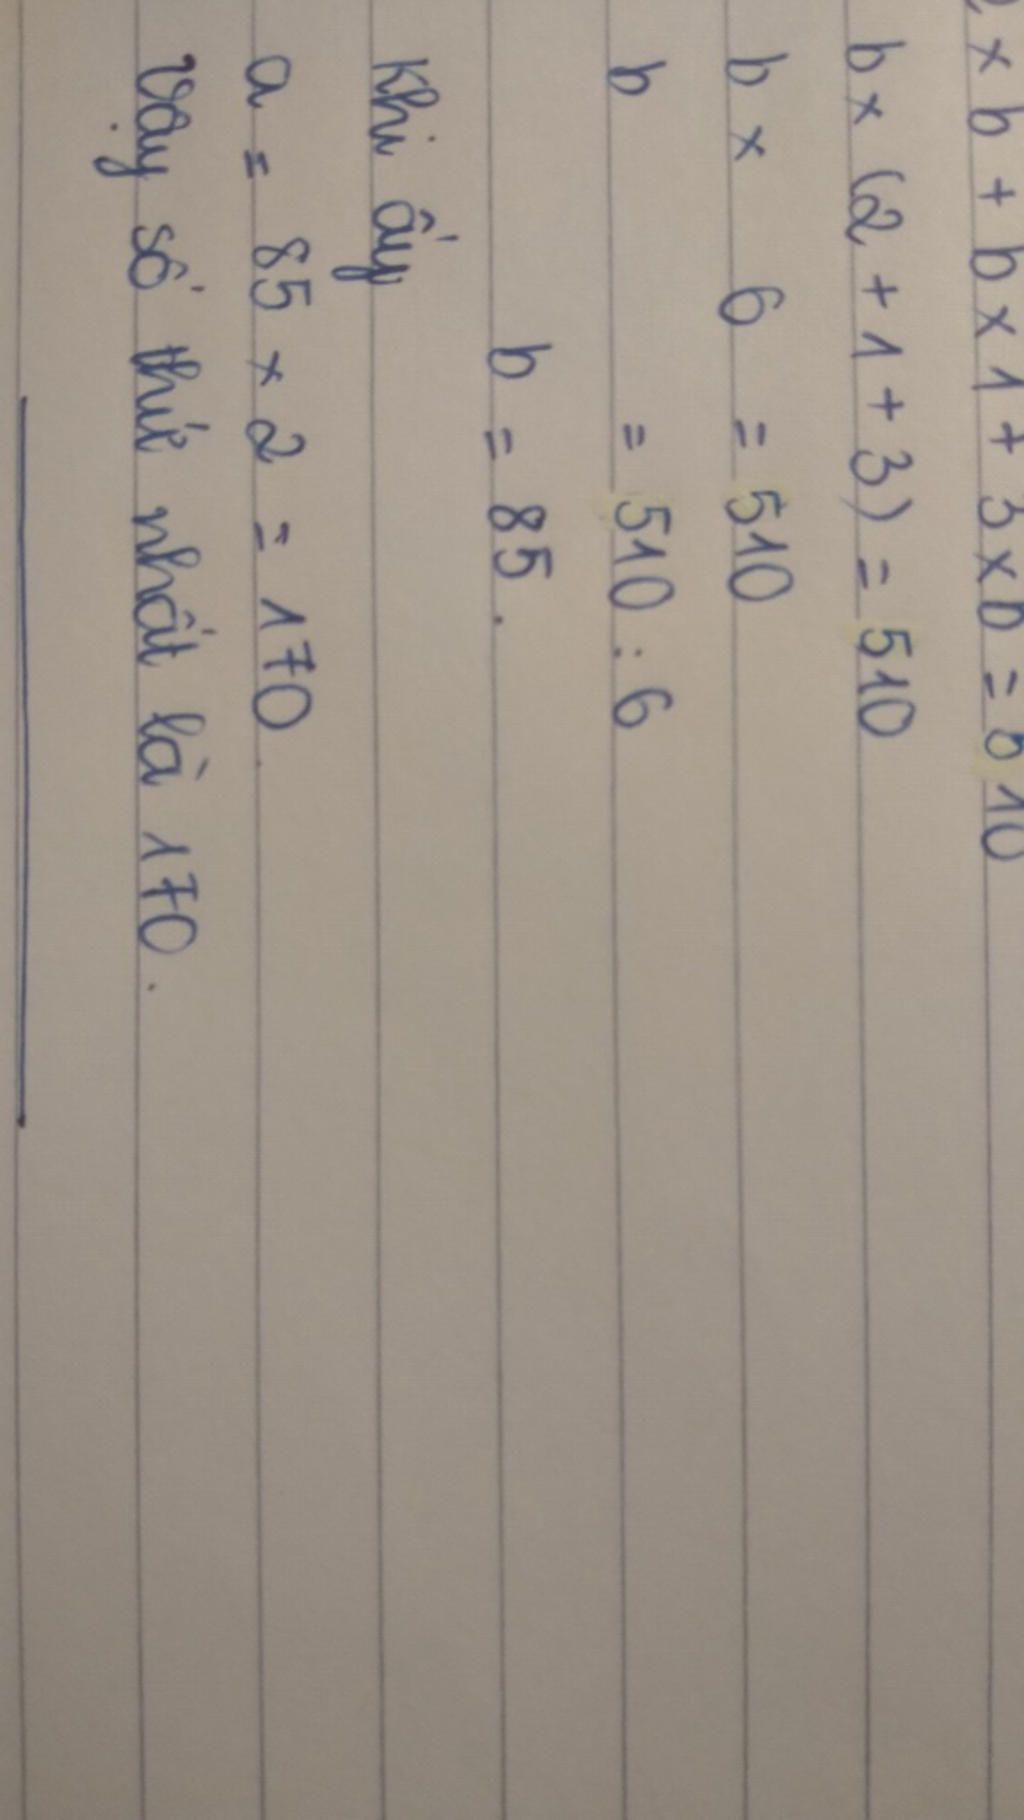 2 x b + b x 1 + 3 x b = 510
b x (2 + 1 + 3) = 510
b x 6 = 510
b = 510 : 6
b = 85.
Khi ấy
a = 85 x 2 = 170.
Vậy số thứ nhất là 170.